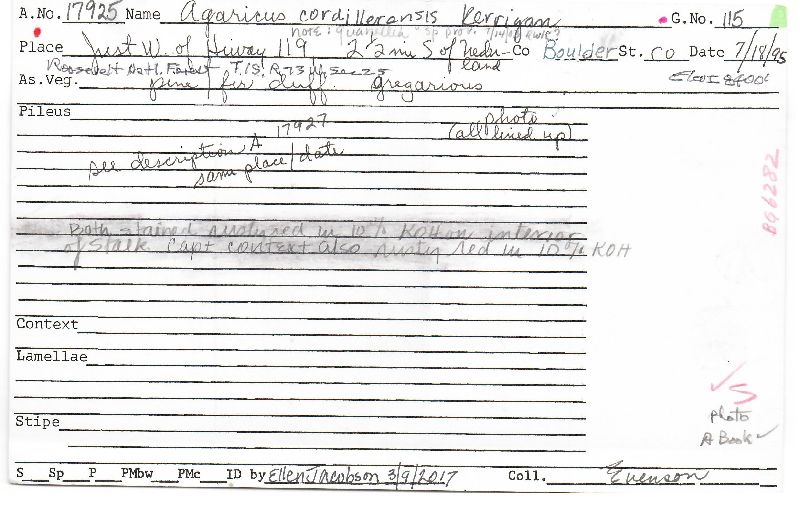 A.No. 17925 Name Agaricus cordillerensis Kerrigan G.No. 115
Place Just W. of Hiway 119 2 1/2 mi S of Nederland Co Boulder St. CO Date 7/18/95
Roosevelt Natl. Forest T.1S, R73W, Sec 25
As.Veg. pine/fir duff gregarious Elev. 8600'
Pileus photo
(all lined up)
see description A 17927
same place/date
BG6282
Both stained rusty red in 10% KOH on interior
of stalk. Capt context also rusty red in 10% KOH
Context
Lamellae
S
photo
Stipe
A Book ✓
S Sp P PMbw PMc ID by Ellen Jacobson 3/9/2017 Coll. Evenson